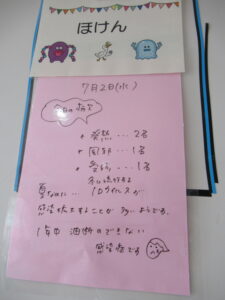 ほけん
7月2日(水)
今日の病欠
発熱...2名
風邪...1名
...1名
夏なのに...
ロウイルスが
感染拡大することが多いようです。
1年中 油断のできない
感染症です